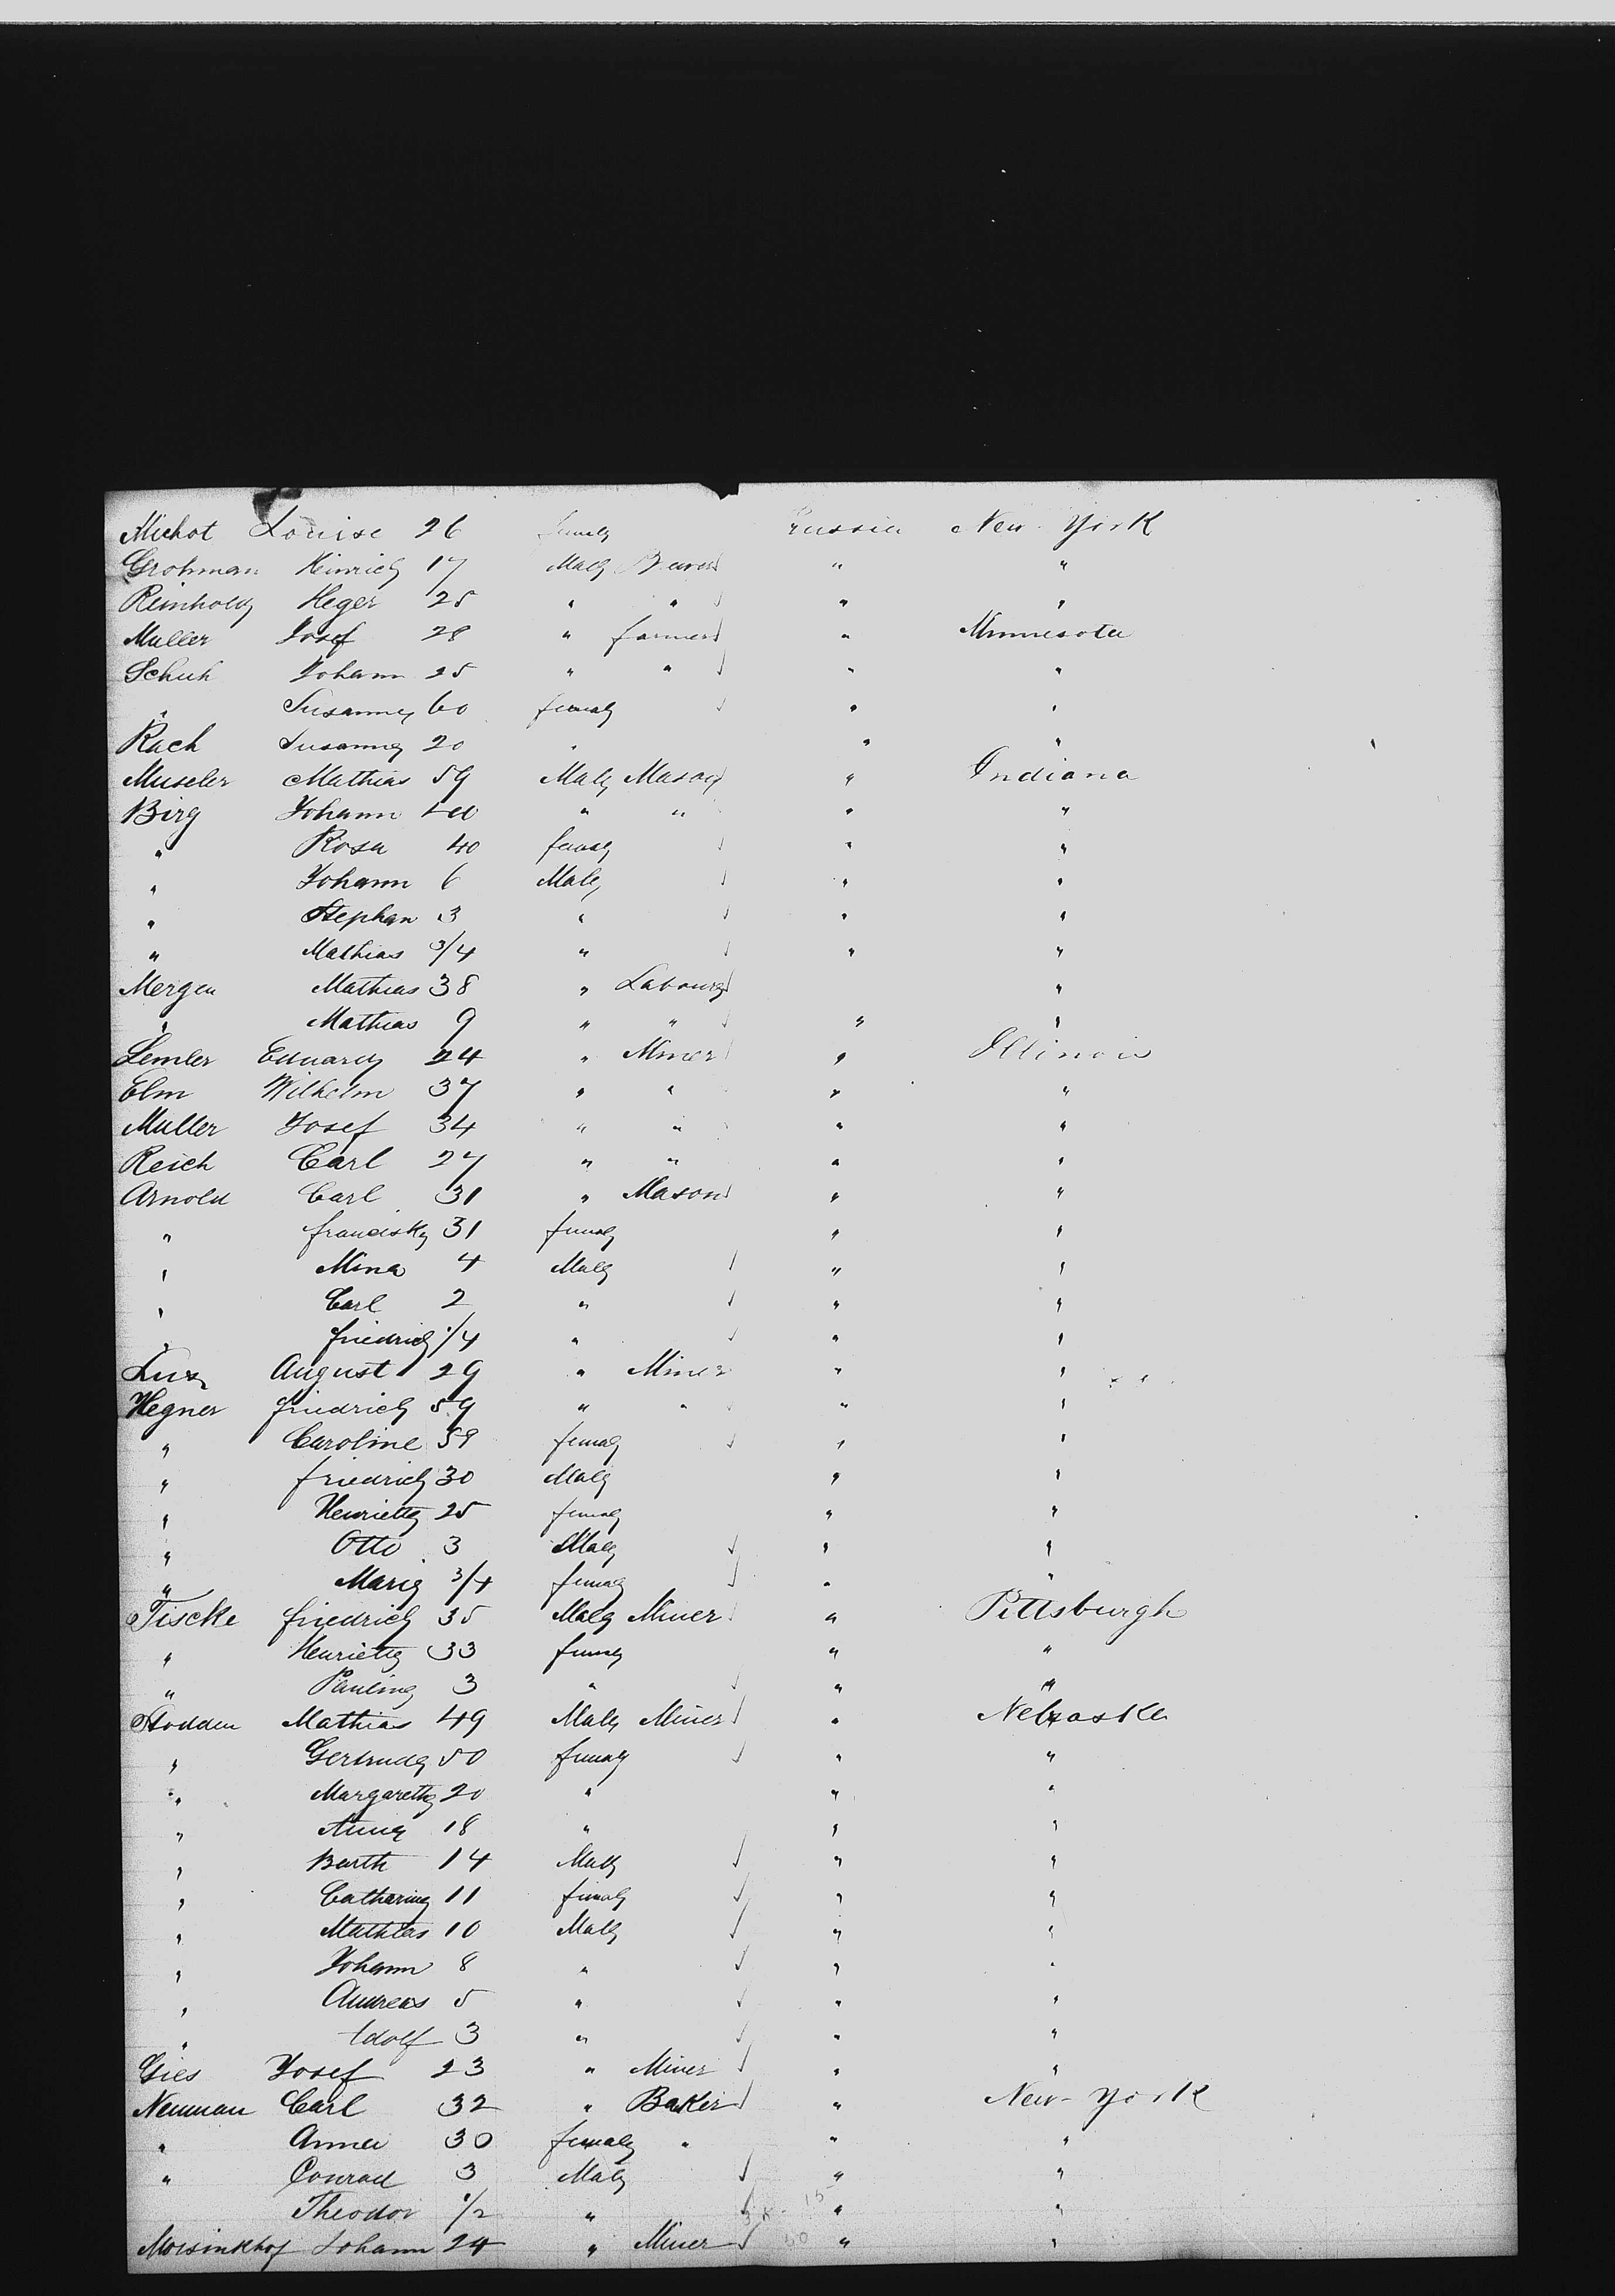 Michot Louise 26 female Prussia New-York
Grohman Heinrich 17 Male " "
Reinhold Heger 25 " " " "
Muller Josef 28 " farmer " Minnesota
Schuh Johann 25 " " " "
" Susanna 60 female " "
Rach Susanna 20 " " "
Museler Mathias 59 Male Mason " Indiana
Birg Johann 40 " " " "
" Rosa 40 female " "
" Johann 6 Male " "
" Stephan 3 " " "
" Mathias 3/4 " " "
Mergen Mathias 38 " Labourer "
" Mathias 9 " " " "
Lemler Eduard 24 " Miner " Illinois
Elm Wilhelm 37 " " " "
Muller Josef 34 " " " "
Reich Carl 27 " " " "
Arnold Carl 31 " Mason " "
" franciska 31 female " "
" Mina 4 Male " "
" Carl 2 " " "
" friedrich 1/4 " " "
August 29 " Miner " "
Hegner friedrich 59 " " " "
" Caroline 59 female " "
" friedrich 30 Male " "
" Henriette 25 female " "
" Otto 3 Male " "
" Marie 3/4 female " "
Tiscke friedrich 35 Male Miner " Pittsburgh
" Henriette 33 female " "
" Pauline 3 " " "
Stodden Mathias 49 Male Miner " Nebraska
" Gertrude 50 female " "
" Margaretha 20 " " "
" Anna 18 " " "
" Barth 14 Male " "
" Catharina 11 female " "
" Mathias 10 Male " "
" Johann 8 " " "
" Andreas 5 " " "
" Adolf 3 " " "
Gies Josef 23 " Miner " "
Neuman Carl 32 " Baker " New-York
" Anna 30 female " " "
" Conrad 3 Male " "
Theodor 1/2 " " "
Morsinkhof Johann 24 " Miner " "